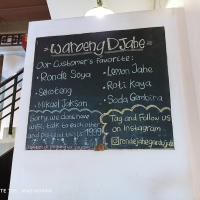 Waroeng DJahe
Our Customer's Favorite:
• Ronde Soya
• Sekoteng
• Mikael Jakson
• Lemon Jahe
• Roti Kaya
• Soda Gembira
Sorry, we don't have
WiFi, talk to each other
and pretend this is 1999
Tag and Follow us
on Instagram